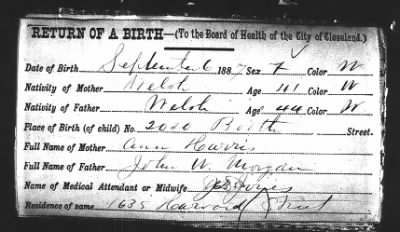 RETURN OF A BIRTH—(To the Board of Health of the City of Cleveland.)
Date of Birth September 6 1887 Sex F Color W
Nativity of Mother Welsh Age 41 Color W
Nativity of Father Welsh Age 44 Color W
Place of Birth (of child) No. 2020 Booth Street.
Full Name of Mother Ann Harris
Full Name of Father John W. Morgan
Name of Medical Attendant or Midwife
Residence of same 1635 Harvard Street